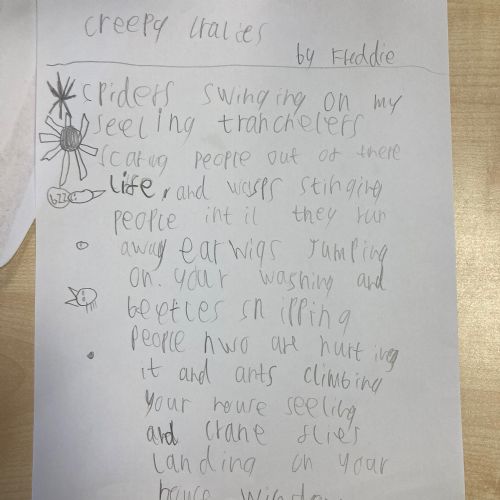 creepy cralies
by Freddie
spiders swinging on my
seeling tranchelers
scaring people out of there
life, and wasps stinging
people intil they run
away earwigs jumping
on. your washing and
beetles snipping
people hwo are hurting
it and ants climbing
your house seeling
and crane flies
landing on your
house window
bzz